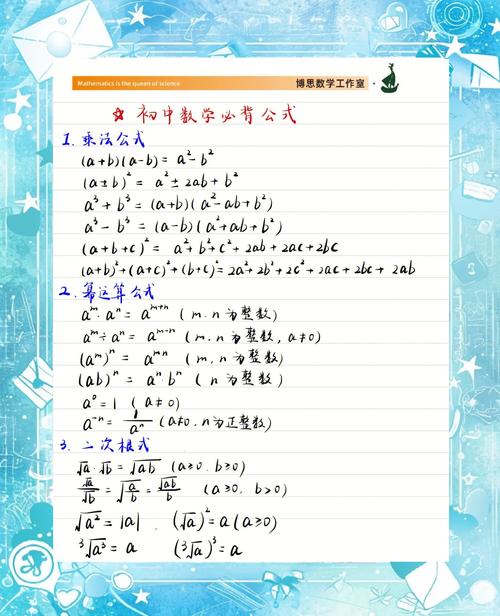 Mathematics is the queen of science 博思数学工作室
☆ 初中数学必背公式
1. 乘法公式
(a+b)(a-b) = a²-b²
(a±b)² = a²±2ab+b²
a³+b³ = (a+b)(a²-ab+b²)
a³-b³ = (a-b)(a²+ab+b²)
(a+b+c)² = a²+b²+c²+2ab+2ac+2bc
(a+b)²+(a+c)²+(b+c)² = 2a²+2b²+2c²+2ac+2bc+2ab
2. 幂运算公式
aᵐ·aⁿ = aᵐ⁺ⁿ (m.n为整数)
aᵐ÷aⁿ = aᵐ⁻ⁿ (m.n为整数, a≠0)
(aᵐ)ⁿ = aᵐⁿ (m,n为整数)
(ab)ⁿ = aⁿ·bⁿ (n为整数)
a⁰ = 1 (a≠0)
a⁻ⁿ = 1/aⁿ (a≠0.n为正整数)
3. 二次根式
√a·√b = √ab (a≥0.b≥0)
√a/√b = √(a/b) = √ab/b (a≥0, b>0)
√a² = |a| (√a)² = a (a≥0)
³√a³ = a (³√a)³ = a